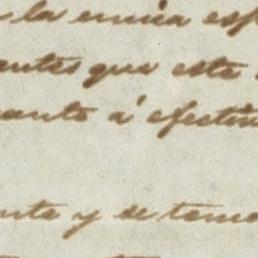 la única esp
antes que este
uanto á efectiv
nte y se tome